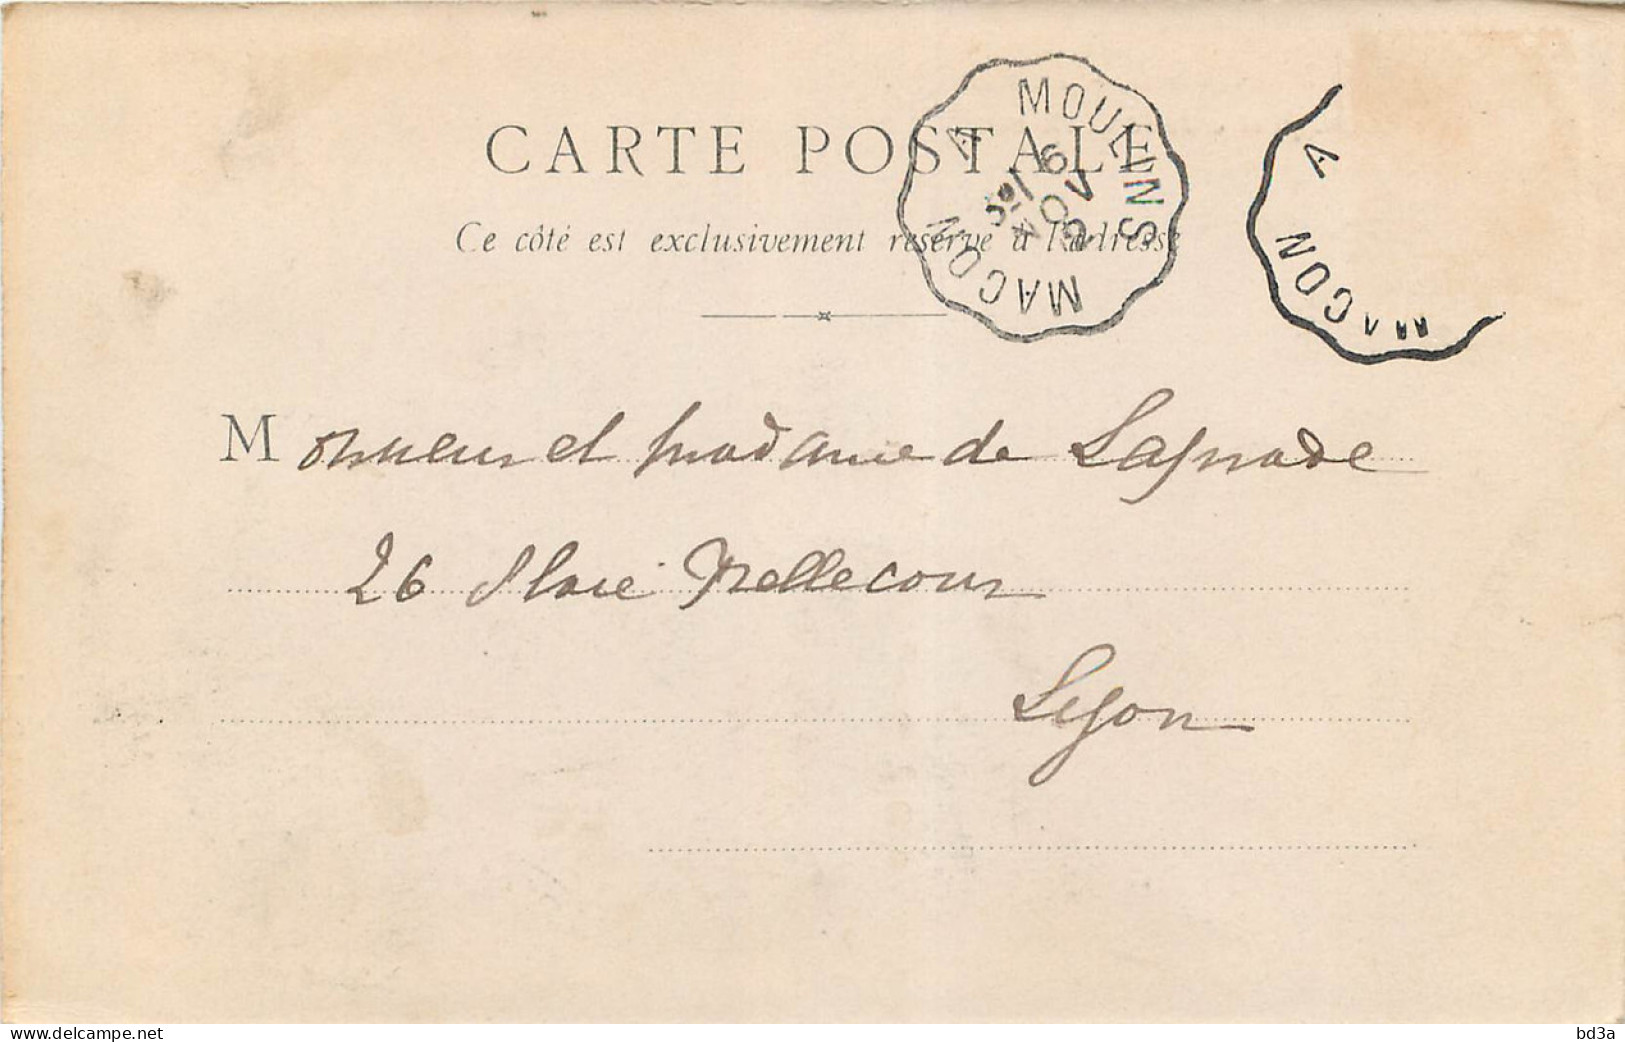 CARTE POSTALE
Ce côté est exclusivement réservé à l'adresse
MOULINS A MACON
6
NOV
A MACON
Monsieur et Madame de
26 Place Bellecour
Lyon
delcampe.net
bd3a